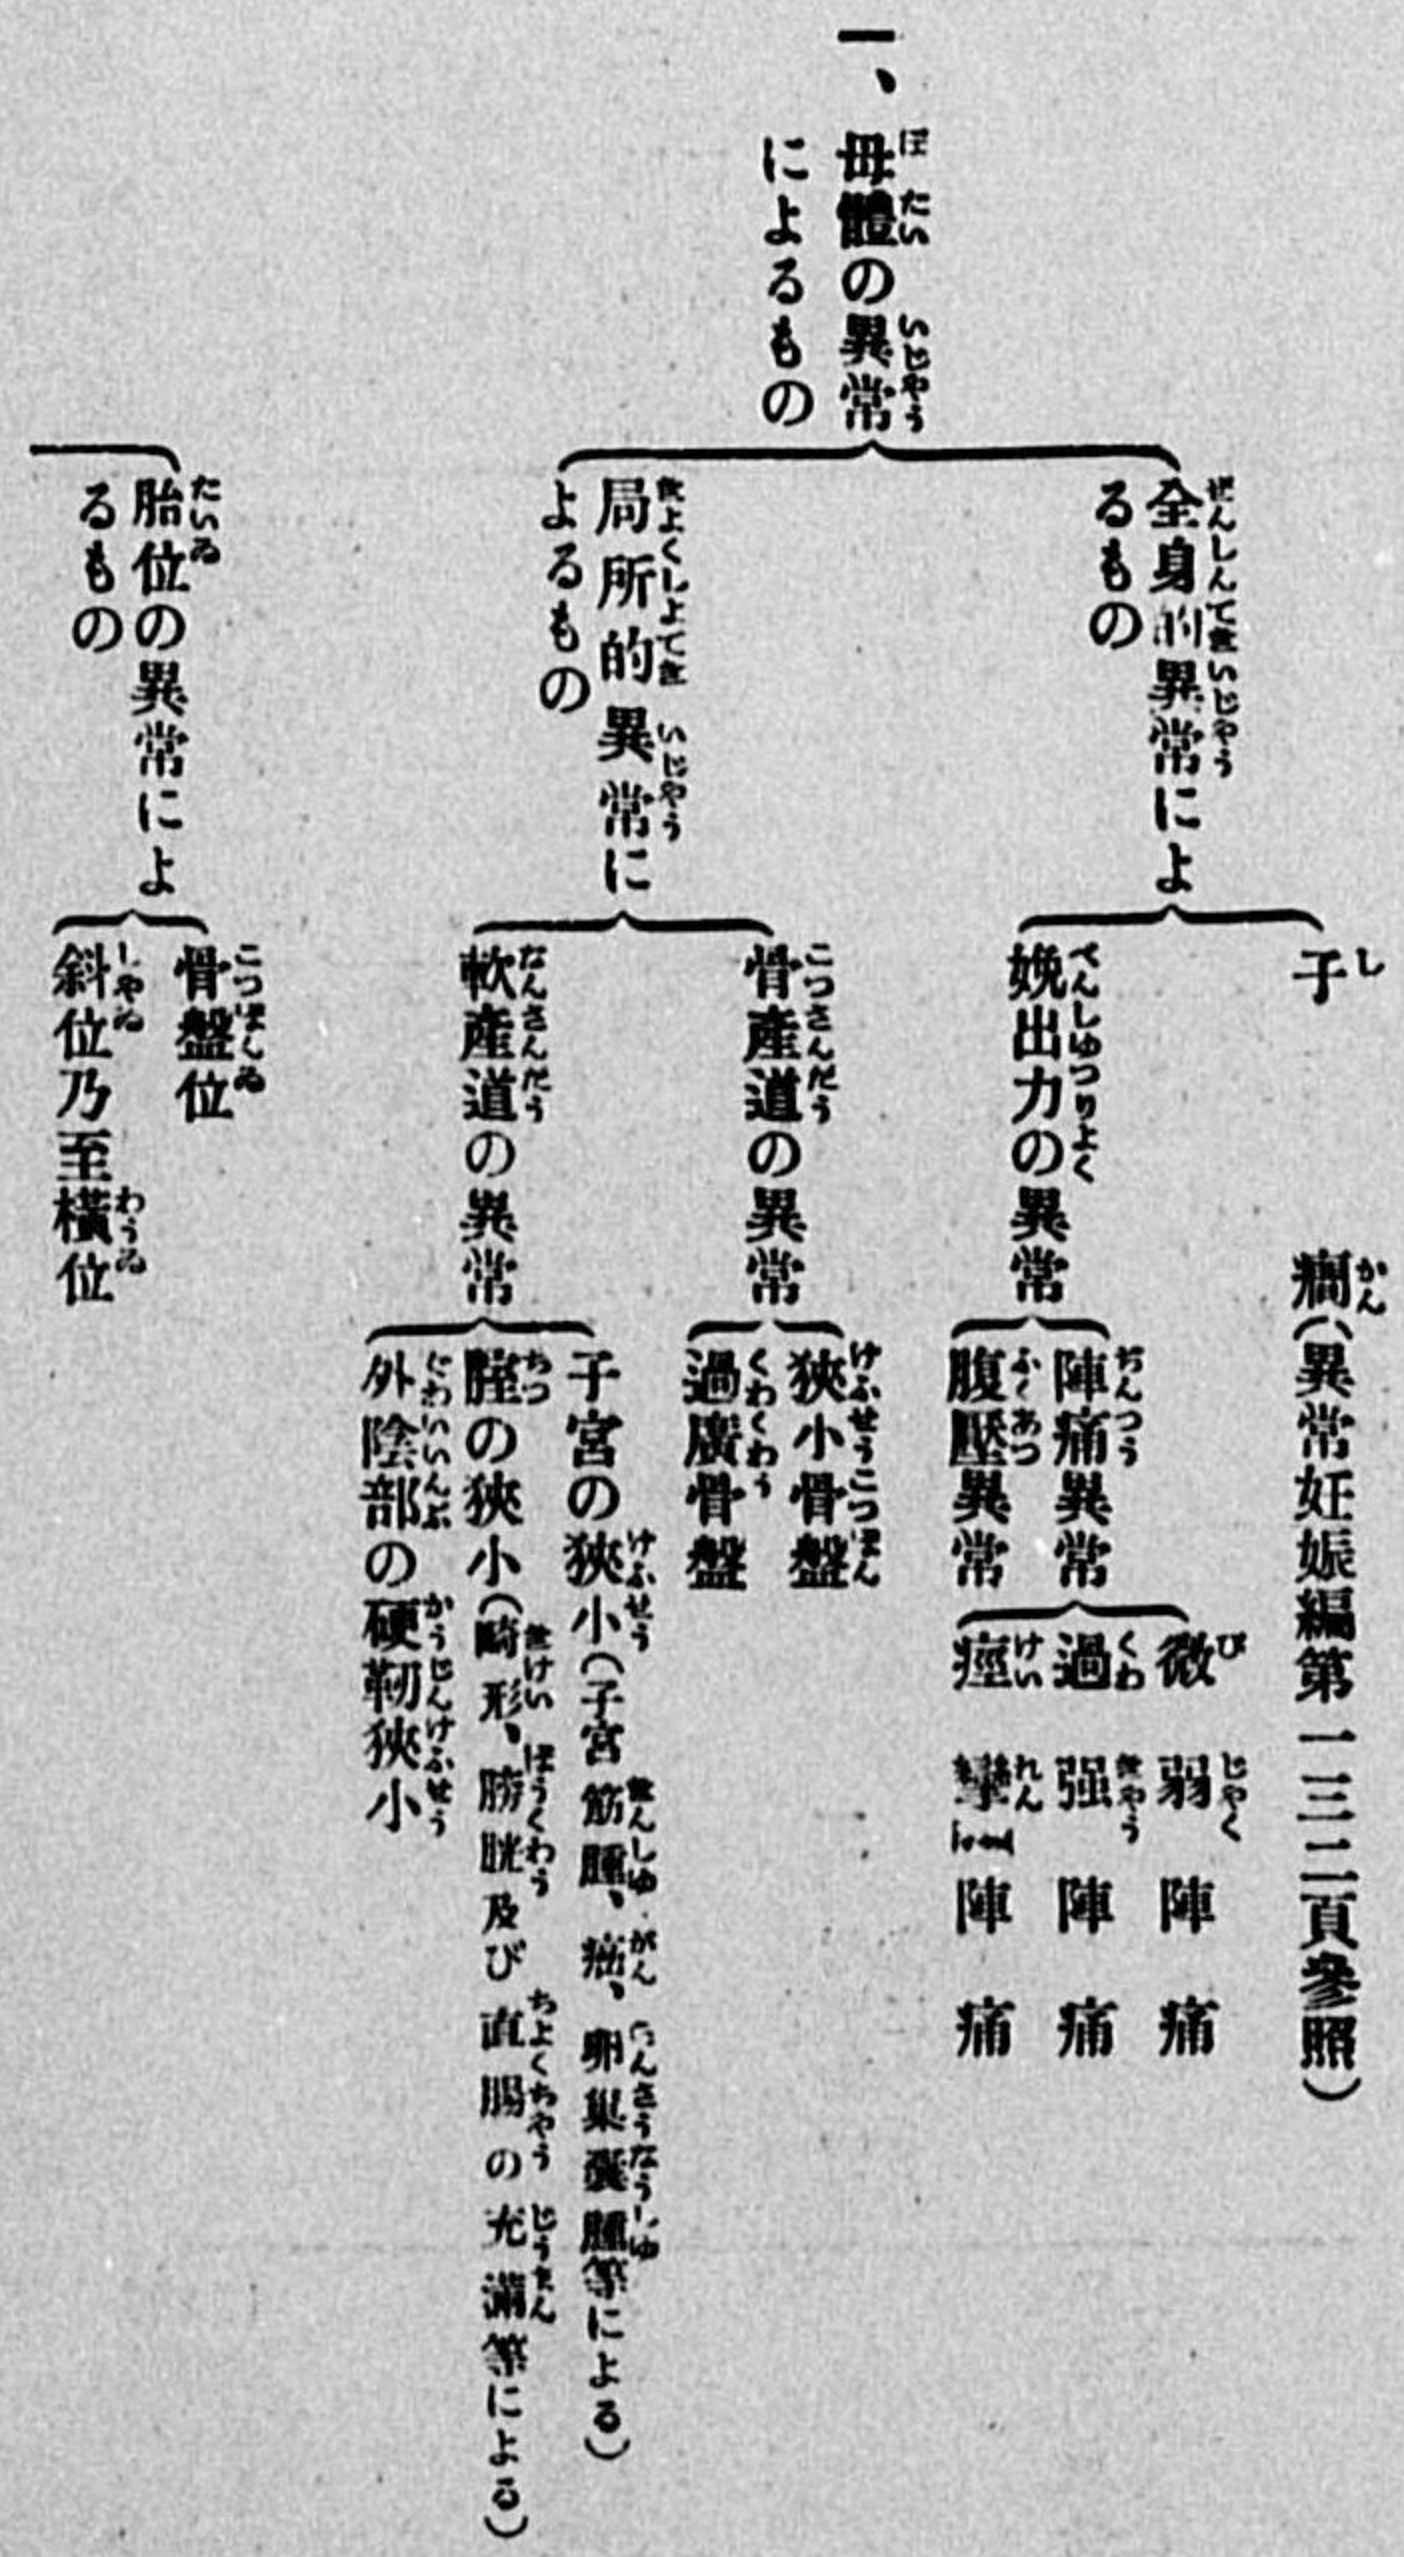 一、母體の異常
によるもの
全身的異常によ
るもの
子癇(異常妊娠編第一三二頁參照)
娩出力の異常
陣痛異常
微弱陣痛
過强陣痛
痙攣陣痛
腹壓異常
局所的異常に
よるもの
骨產道の異常
狹小骨盤
過廣骨盤
軟產道の異常
子宮の狹小(子宮筋腫、癌、卵巢囊腫等による)
膣の狹小(畸形、膀胱及び直腸の充滿等による)
外陰部の硬靭狹小
胎位の異常によ
るもの
骨盤位
斜位乃至橫位